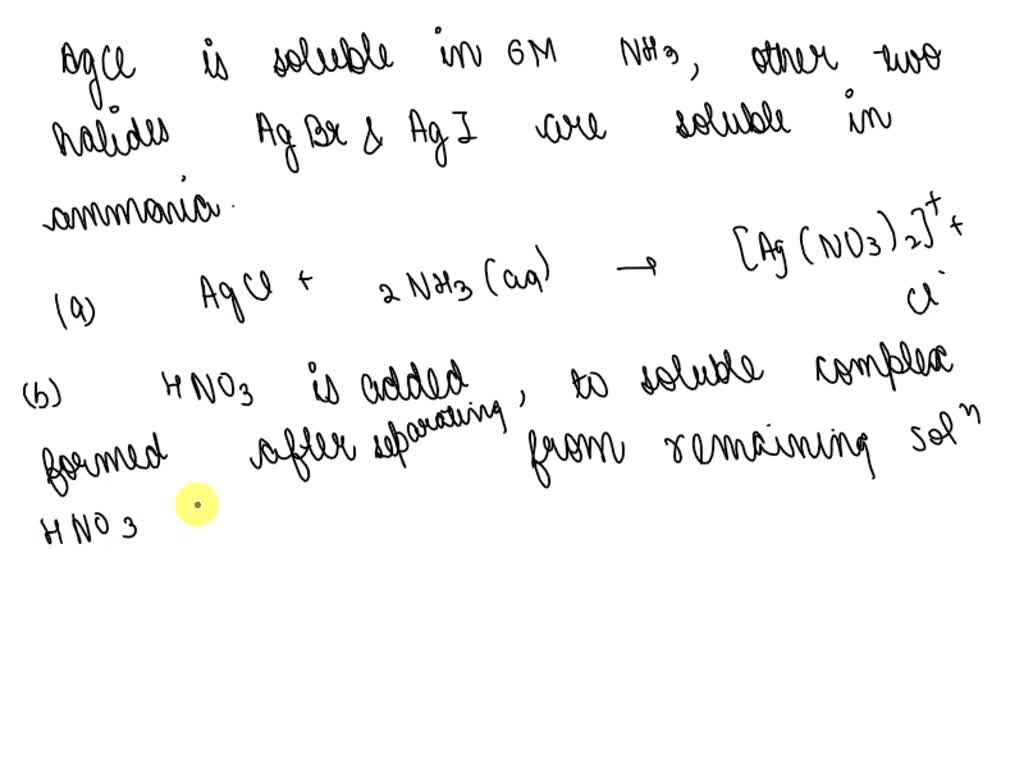 AgCl is soluble in 6M NH3, other two
halides AgBr & AgI are soluble in
ammonia.
(a) AgCl + 2NH3(aq) → [Ag(NO3)2]+ +
Cl-
(b) HNO3 is added, to soluble complex
formed after separating from remaining soln
HNO3